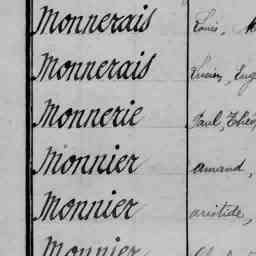 Monnerais Louis,
Monnerais Lucien, Eug
Monnerie Paul, Théo
Monnier Amand,
Monnier Aristide,
Monnier